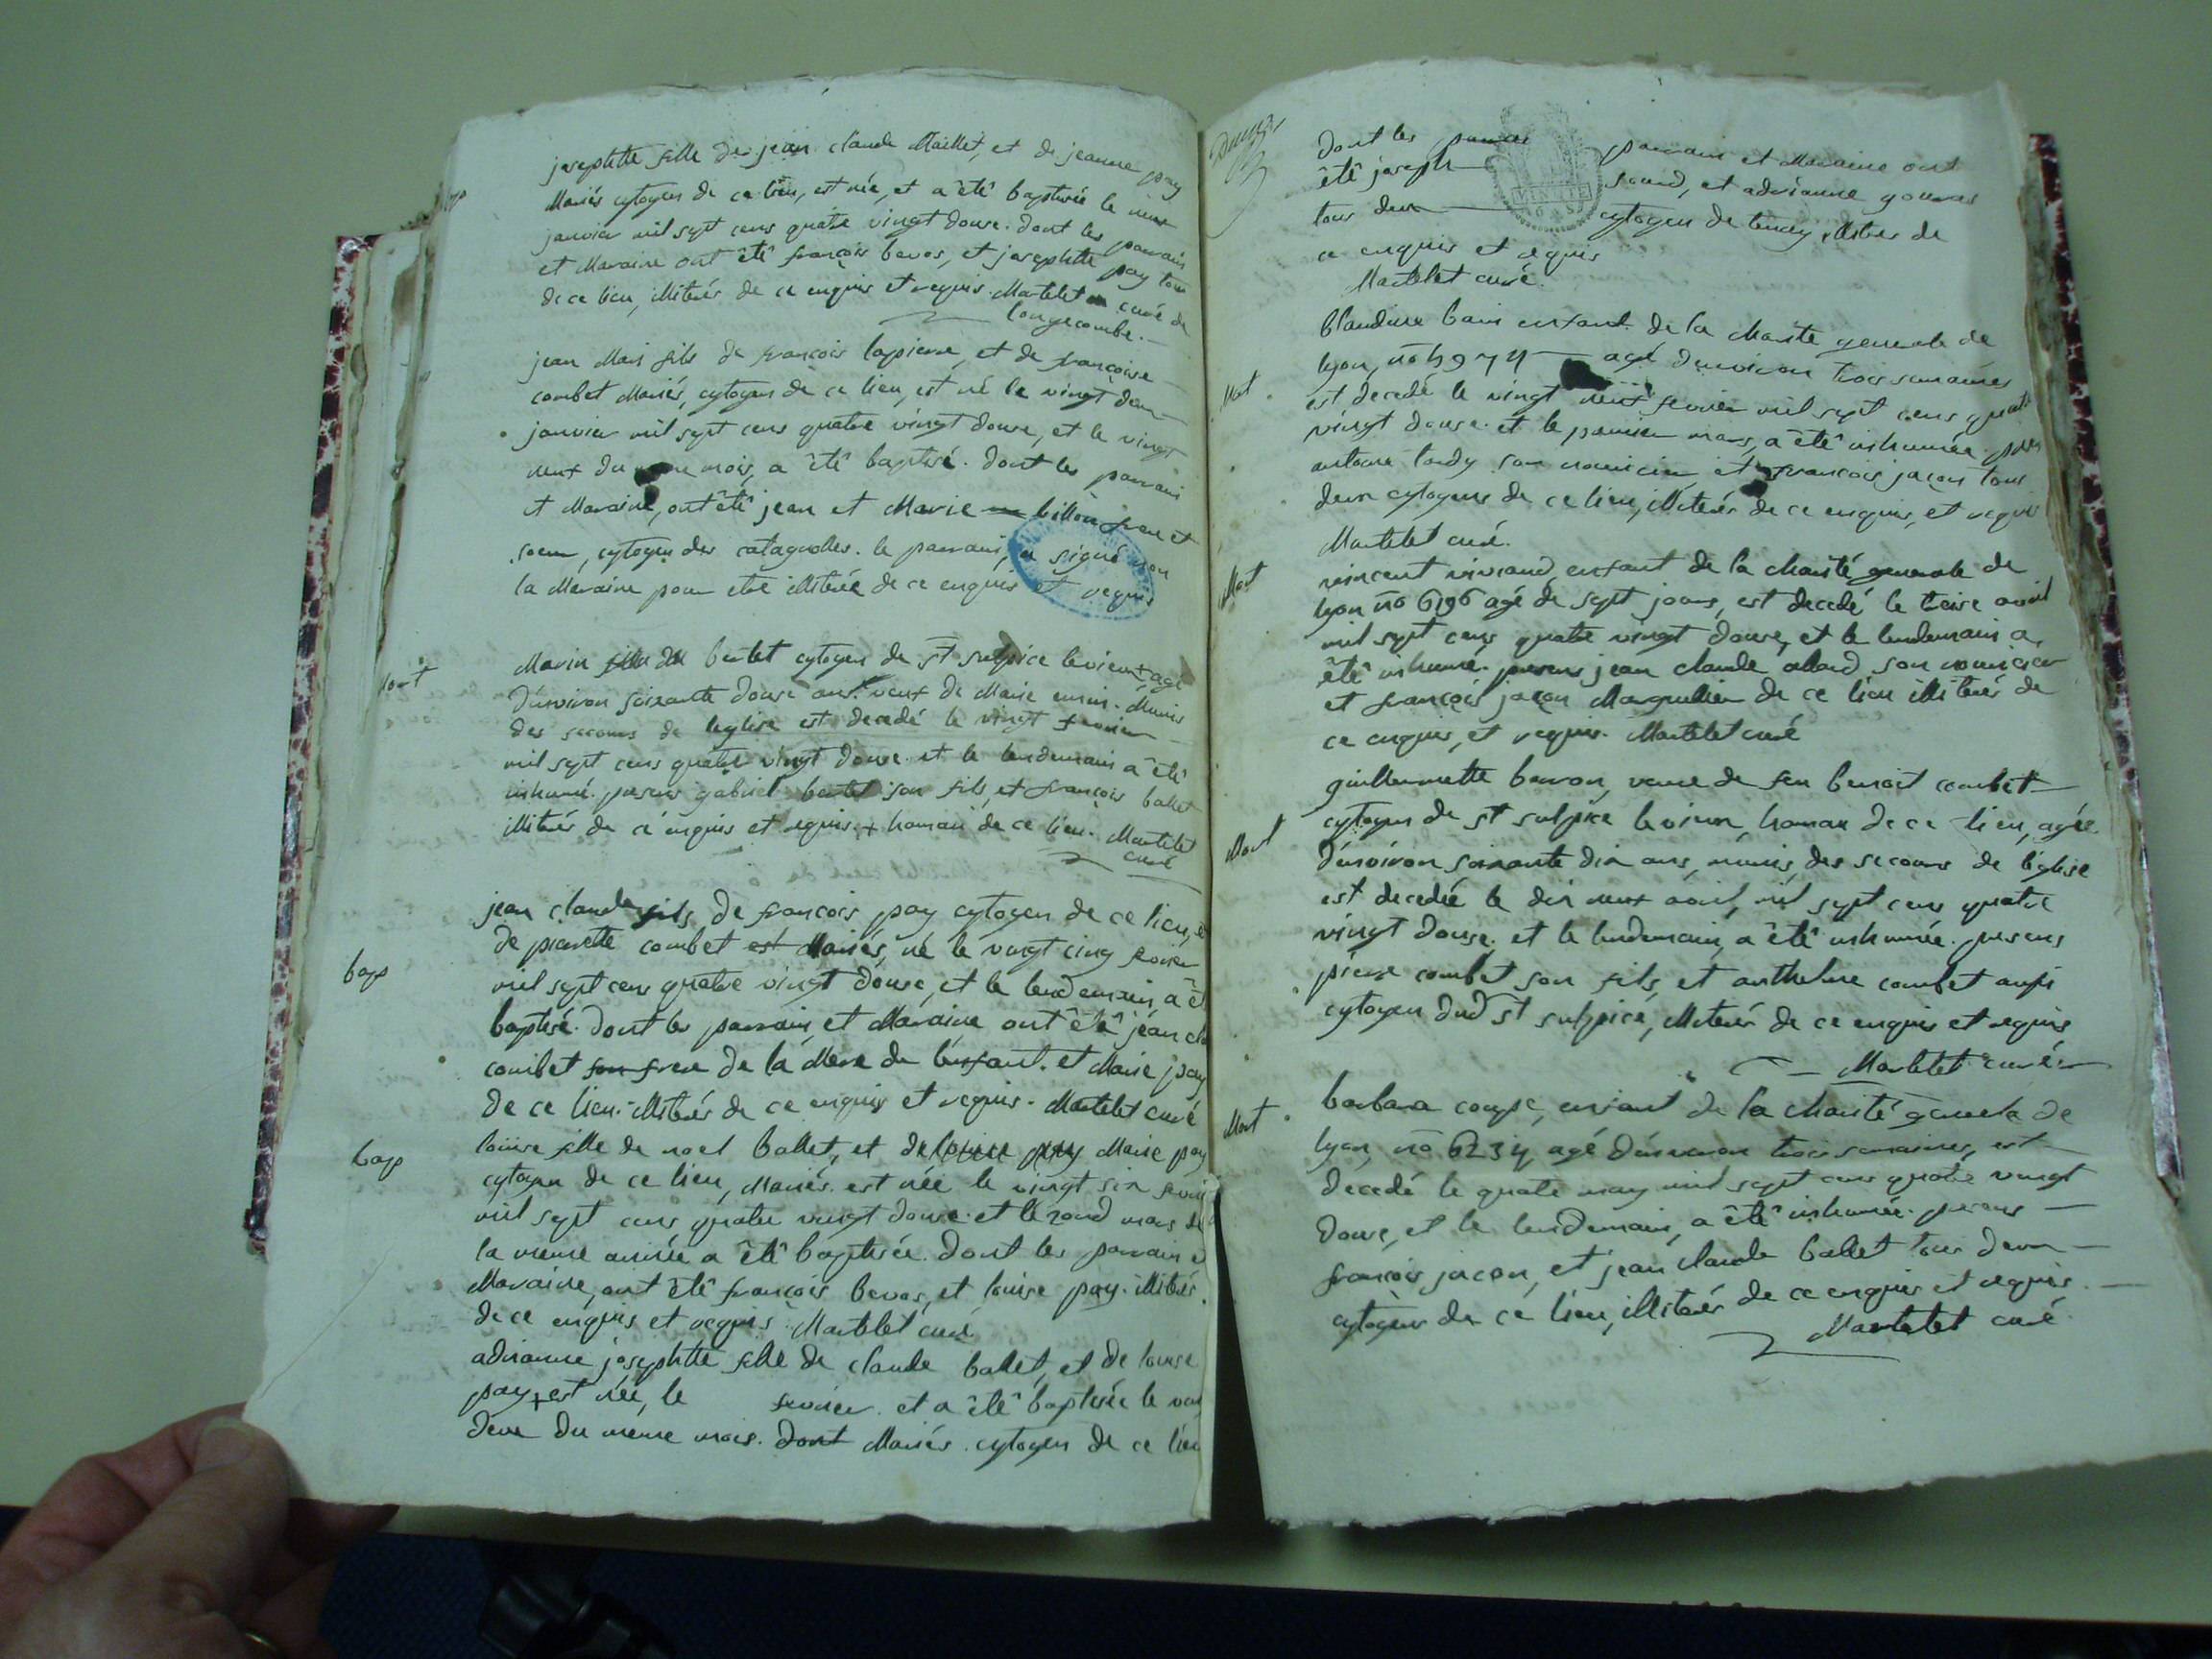 bap
josephtte fille de jean claude Maillet, et de jeanne pay
Mariés cytoyen de ce lieu, est née, et a êtê baptisée le neuf
janvier mil sept cens quatre vingt douse. dont les parrain
et Maraine ont êtê françois bevos, et josephtte pay tous
de ce lieu, illiterés de ce enquis et requis. Martelet curé de
longecombe.
jean Mari fils de françois lapierre, et de françoise
combet Mariés, cytoyen de ce lieu, est né le vingt deux
janvier mil sept cens quatre vingt douse, et le vingt
neuf du meme mois, a êtê baptisé. dont les parrain
et Maraine, ont êtê jean et Marie billon frere et
soeur, cytoyen des catagnolles. le parrain, a signé non
la Maraine pour etre illiterée de ce enquis et requis
Mort
Marin bertet cytoyen de st sulpice levieux agé
d'environ soixante douse ans. veuf de Marie. Munis
des secours de leglise est decedé le vingt fevrier
mil sept cens quatre vingt douse. et le lendemain a êtê
inhumé. presens gabriel bertet son fils, et françois ballet
illiterés de ce enquis et requis. + hameau de ce lieu. Martelet
curé
bap
jean claude fils de françois pay cytoyen de ce lieu, et
de pierrette combet est Mariés, né le vingt cinq fevrier
mil sept cens quatre vingt douse, et le lendemain, a êtê
baptisé. dont les parrain et Maraine ont êtê jean cla
combet son frere de la Mere de l'enfant. et Marie pay
de ce lieu. illiterés de ce enquis et requis. Martelet curé
bap
louise fille de noel ballet, et de louise pay Marie pay
cytoyen de ce lieu, Mariés. est née le vingt six fevrier
mil sept cens quatre vingt douse. et le second mars de
la meme année a êtê baptisée. dont les parrain et
Maraine, ont êtê françois bevos, et louise pay. illiterés
de ce enquis et requis. Martelet curé
adrianne josephtte fille de claude ballet, et de louise
pay + est née, le fevrier. et a êtê baptisée le vingt
deux du meme mois. dont Mariés. cytoyen de ce lieu
dont les parrain parrain et Maraine ont
êtê joseph sound, et adrianne gouvras
tous deux cytoyen de tenay, illiterés de
ce enquis et requis
Martelet curé.
Mort
blandine bain enfant de la charité generale de
lyon, no agé d'environ trois semaines
est decedé le vingt neuf fevrier mil sept cens quatre
vingt douse. et le premier mars, a êtê inhumée. pres
antoine tardy son nouricier et françois jaçon tous
deux cytoyens de ce lieu, illiterés de ce enquis, et requis
Martelet curé.
Mort
vincent vivrand, enfant de la charité generale de
lyon no 6196 agé de sept jours, est decedé le treise avril
mil sept cens quatre vingt douse, et le lendemain a
êtê inhumé. presens jean claude allard son nouricier
et françois jaçon Marguillier de ce lieu illiterés de
ce enquis, et requis. Martelet curé
Mort
guillermette barron, veuve de feu benoit combet
cytoyen de st sulpice levieux, hamau de ce lieu, agée
d'environ soixante dix ans, munis des secours de l'église
est decedée le dix neuf avril, mil sept cens quatre
vingt douse. et le lendemain, a êtê inhumée. presens
pierre combet son fils, et anthelme combet aussi
cytoyen dud st sulpice, illiterés de ce enquis et requis
Martelet curé.
Mort
barbara coupe, enfant de la charité generale de
lyon, no 6234 agé d'environ trois semaines, est
decedé le quatre may mil sept cens quatre vingt
douse, et le lendemain, a êtê inhumée. presens
françois jaçon, et jean claude ballet tous deux
cytoyens de ce lieu, illiterés de ce enquis et requis.
Martelet curé